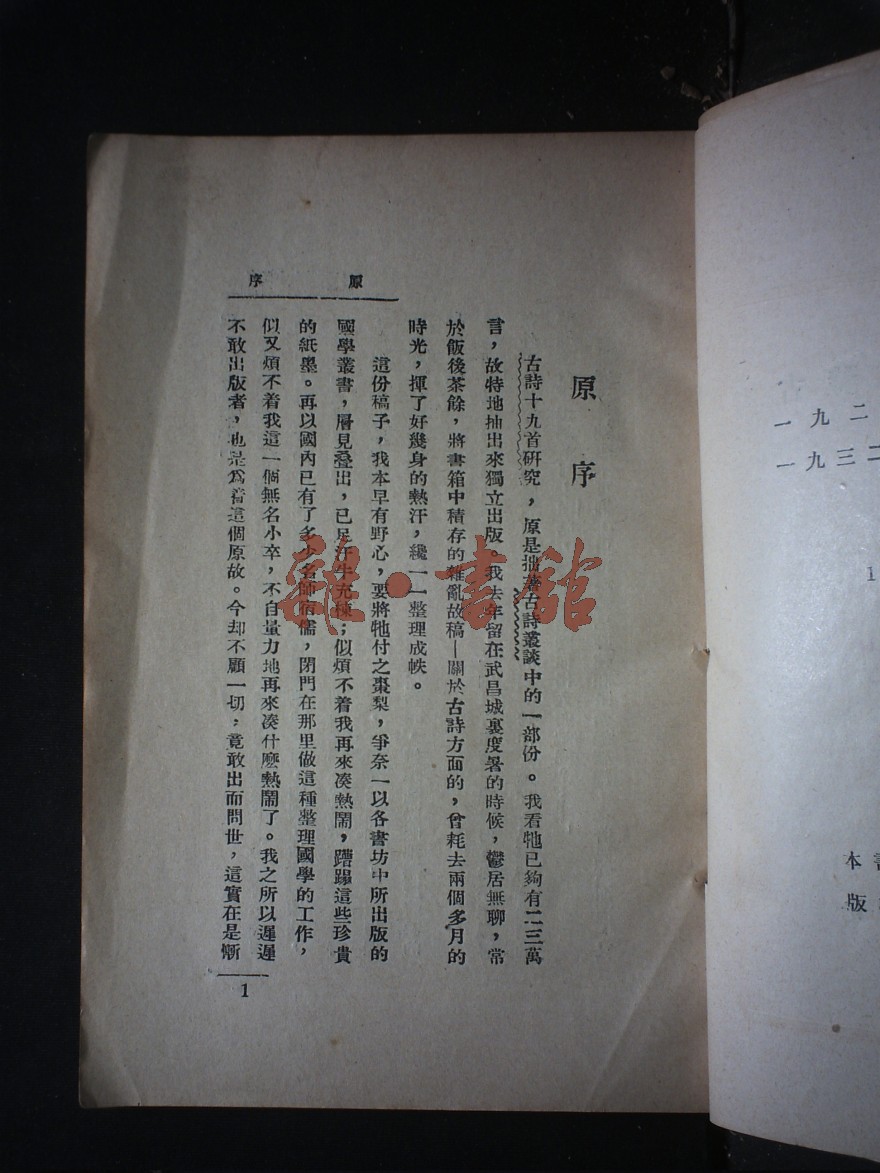 一九二
一九三二
1
本書
版
原序
古詩十九首研究，原是拙著古詩叢談中的一部份。我看牠已夠有二三萬
言，故特地抽出來獨立出版。我去年留在武昌城裏度暑的時候，鬱居無聊，常
於飯後茶餘，將書箱中積存的雜亂故稿—關於古詩方面的，曾耗去兩個多月的
時光，揮了好幾身的熱汗，纔一一整理成帙。
這份稿子，我本早有野心，要將牠付之棗梨，爭奈一以各書坊中所出版的
國學叢書，層見疊出，已足汗牛充棟；似煩不着我再來湊熱鬧，蹧蹋這些珍貴
的紙墨。再以國內已有了多少名師宿儒，閉門在那里做這種整理國學的工作，
似又煩不着我這一個無名小卒，不自量力地再來湊什麽熱鬧了。我之所以遲遲
不敢出版者，也是爲着這個原故。今却不顧一切，竟敢出而問世，這實在是慚
原序
1
雜·書館